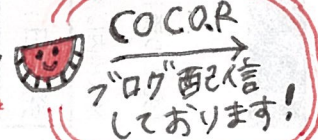 COCO.R
ブログ配信
しております!